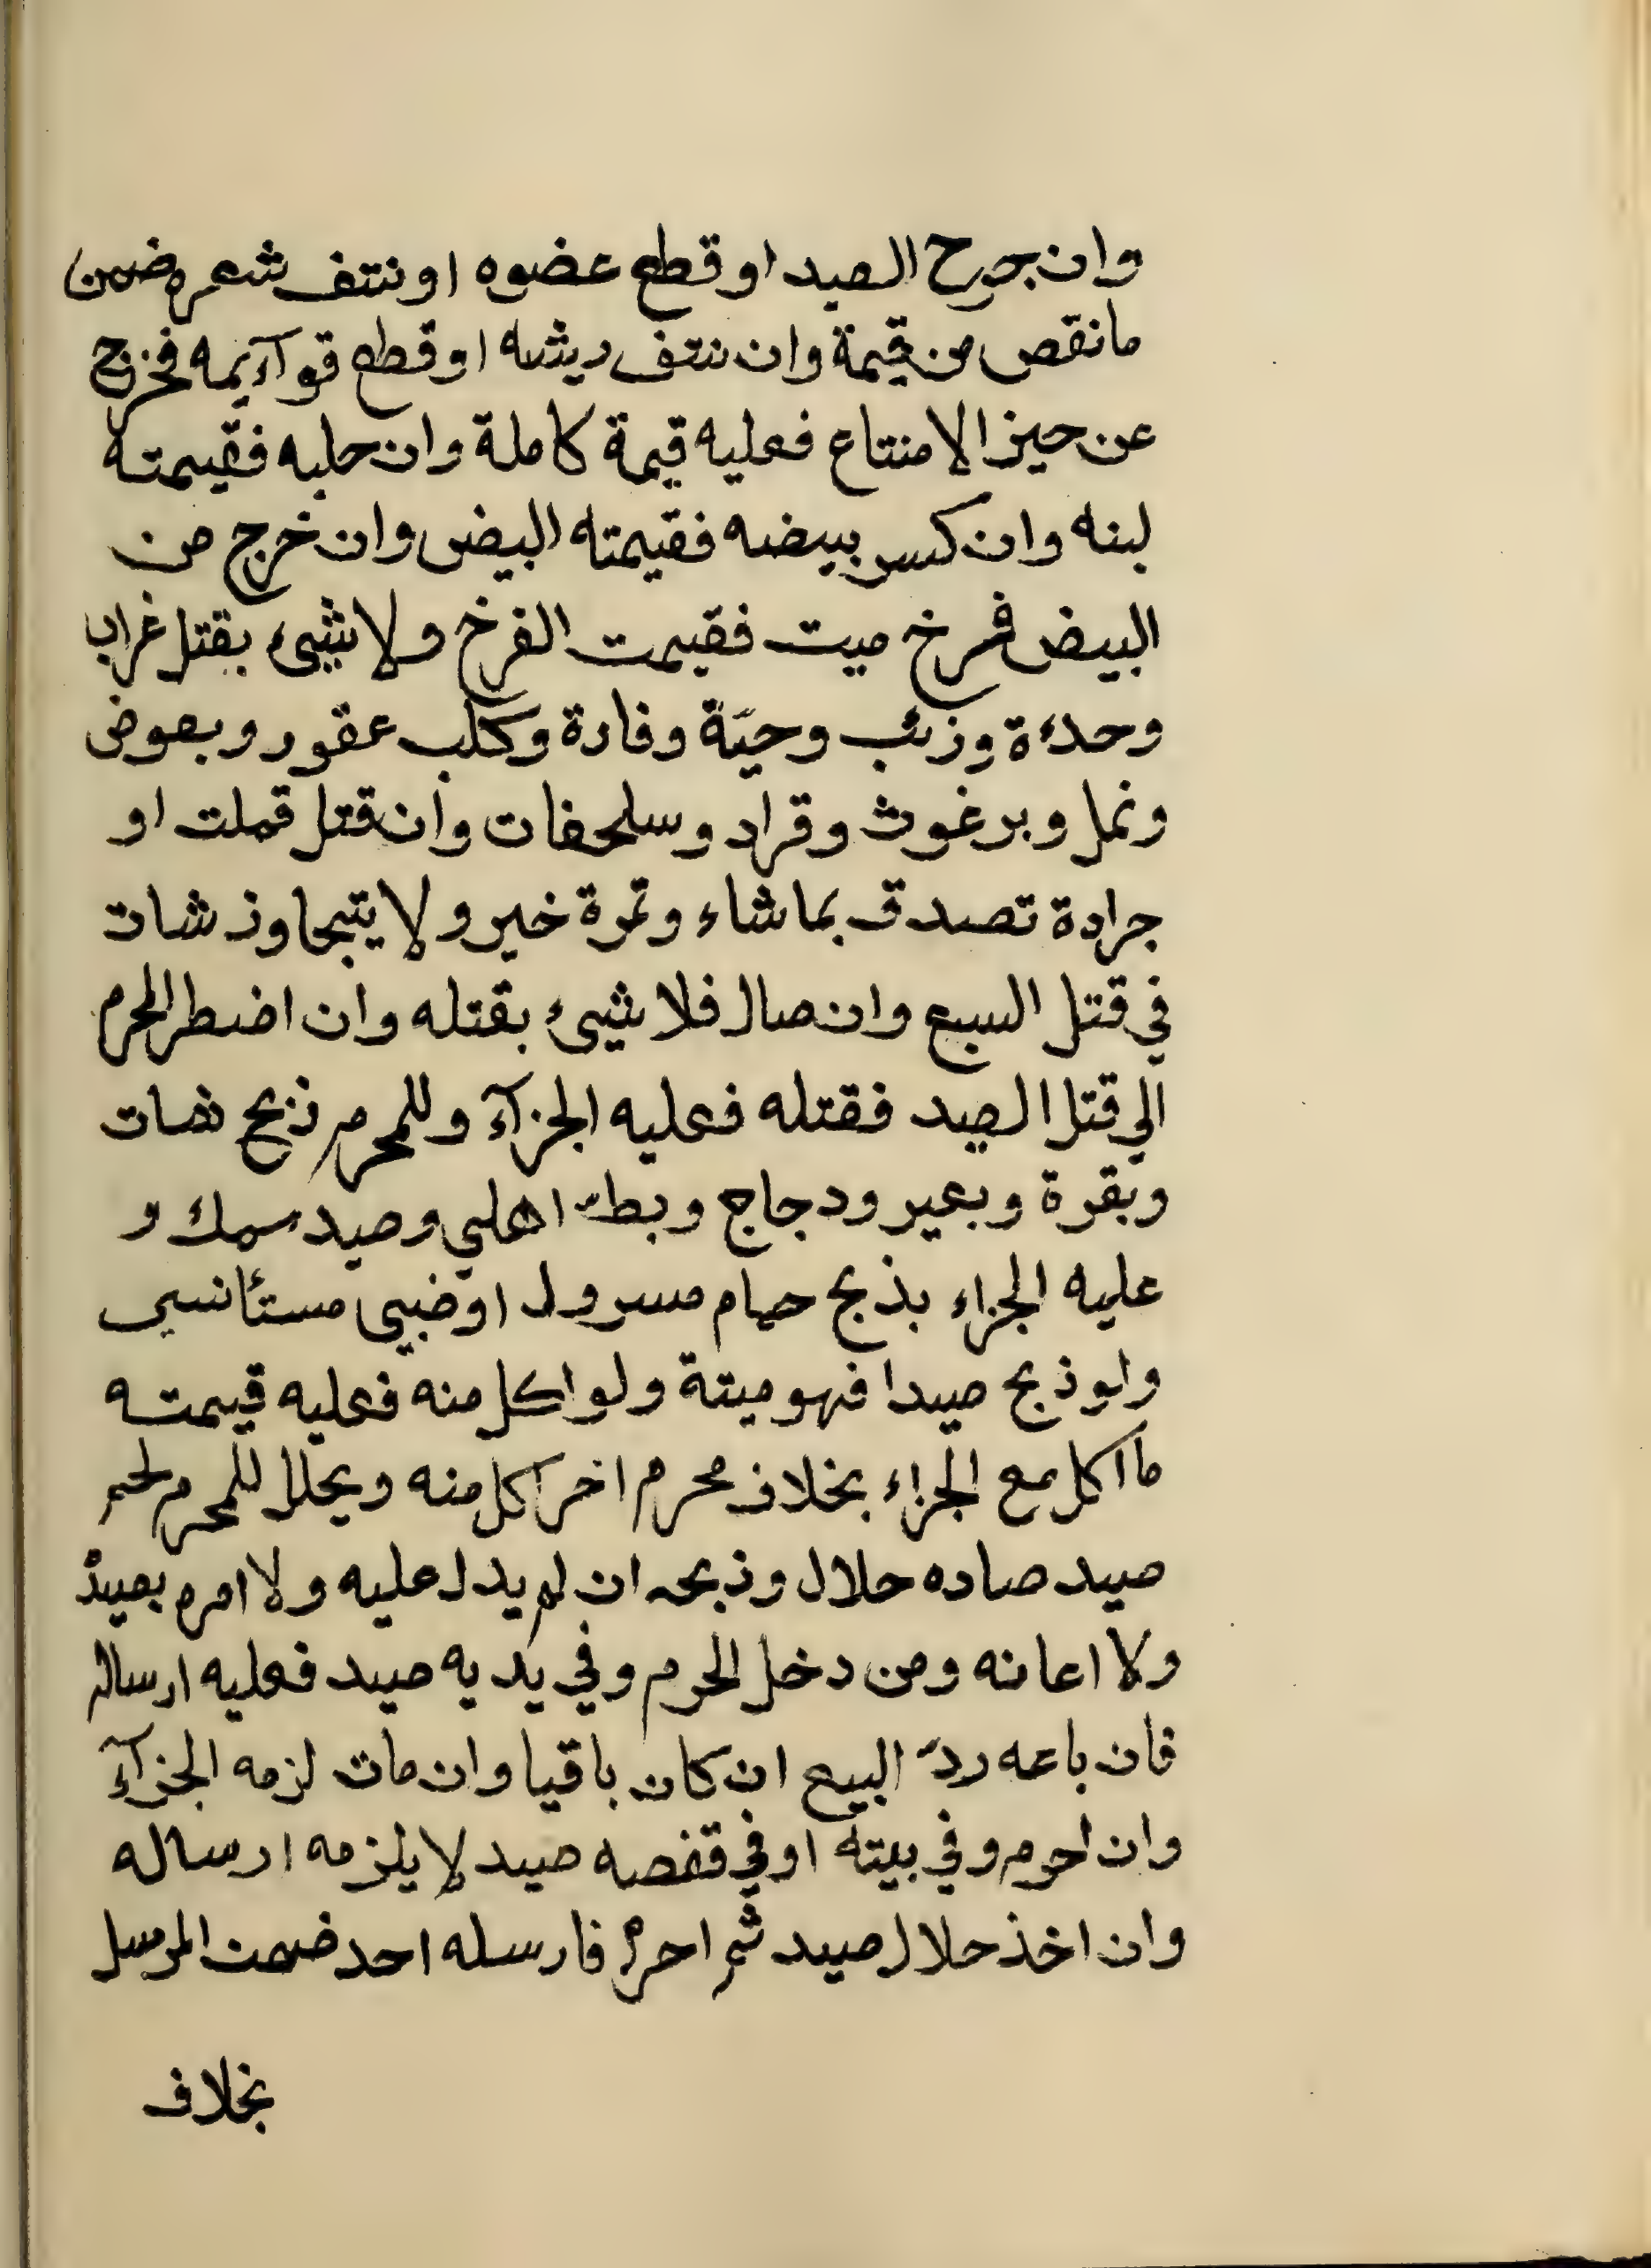 وان جرح الصيد او قطع عضوه او نتف شعره ضمن
ما نقص من قيمة وان نتف ريشه او قطع قوآئمه فخرج
عن حيز الامنتاع فعليه قيمة كاملة وان حلبه فقيمته
لبنه وان كسر بيضه فقيمته البيض وان خرج من
البيض فرخ ميت فقيمت الفرخ ولا شيئ بقتل غراب
وحدءة وذئب وحيّة وفارة وكلب عقور وبعوض
ونمل وبرغوث وقراد وسلحفات وان قتل قملت او
جرادة تصدق بما شاء وتمرة خير ولا يتجاوز شات
في قتل السبع وان صال فلا شيئ بقتله وان اضطر المحرم
الي قتل الصيد فقتله فعليه الجزآء وللمحرم ذبح شات
وبقرة وبعير ودجاج وبطّ اهلي وصيد سمك و
عليه الجزاء بذبح حمام مسرول او ضبي مستئانسي
ولو ذبح صيدا فهو ميتة ولو اكل منه فعليه قيمته
ما اكل مع الجزاء بخلاف محرم اخر اكل منه ويحلل للمحرم لحم
صيد صاده حلال وذبحه ان لم يدل عليه ولا امره بصيدٌ
ولا اعانه ومن دخل الحرم وفي يديه صيد فعليه ارساله
فان باعه ردّ البيع ان كان باقيا وان مات لزمه الجزآء
وان احرم وفي بيته او في قفصه صيد لا يلزمه ارساله
وان اخذ حلال صيد ثم احرم فارسله احد ضمن المرسل
بخلاف